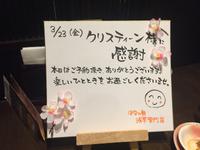 3/23(金)
クリスティーン様に
感謝
本日はご予約頂き ありがとうございます!
楽しいひとときを お過ごしくださいませ。
浅草雷門店